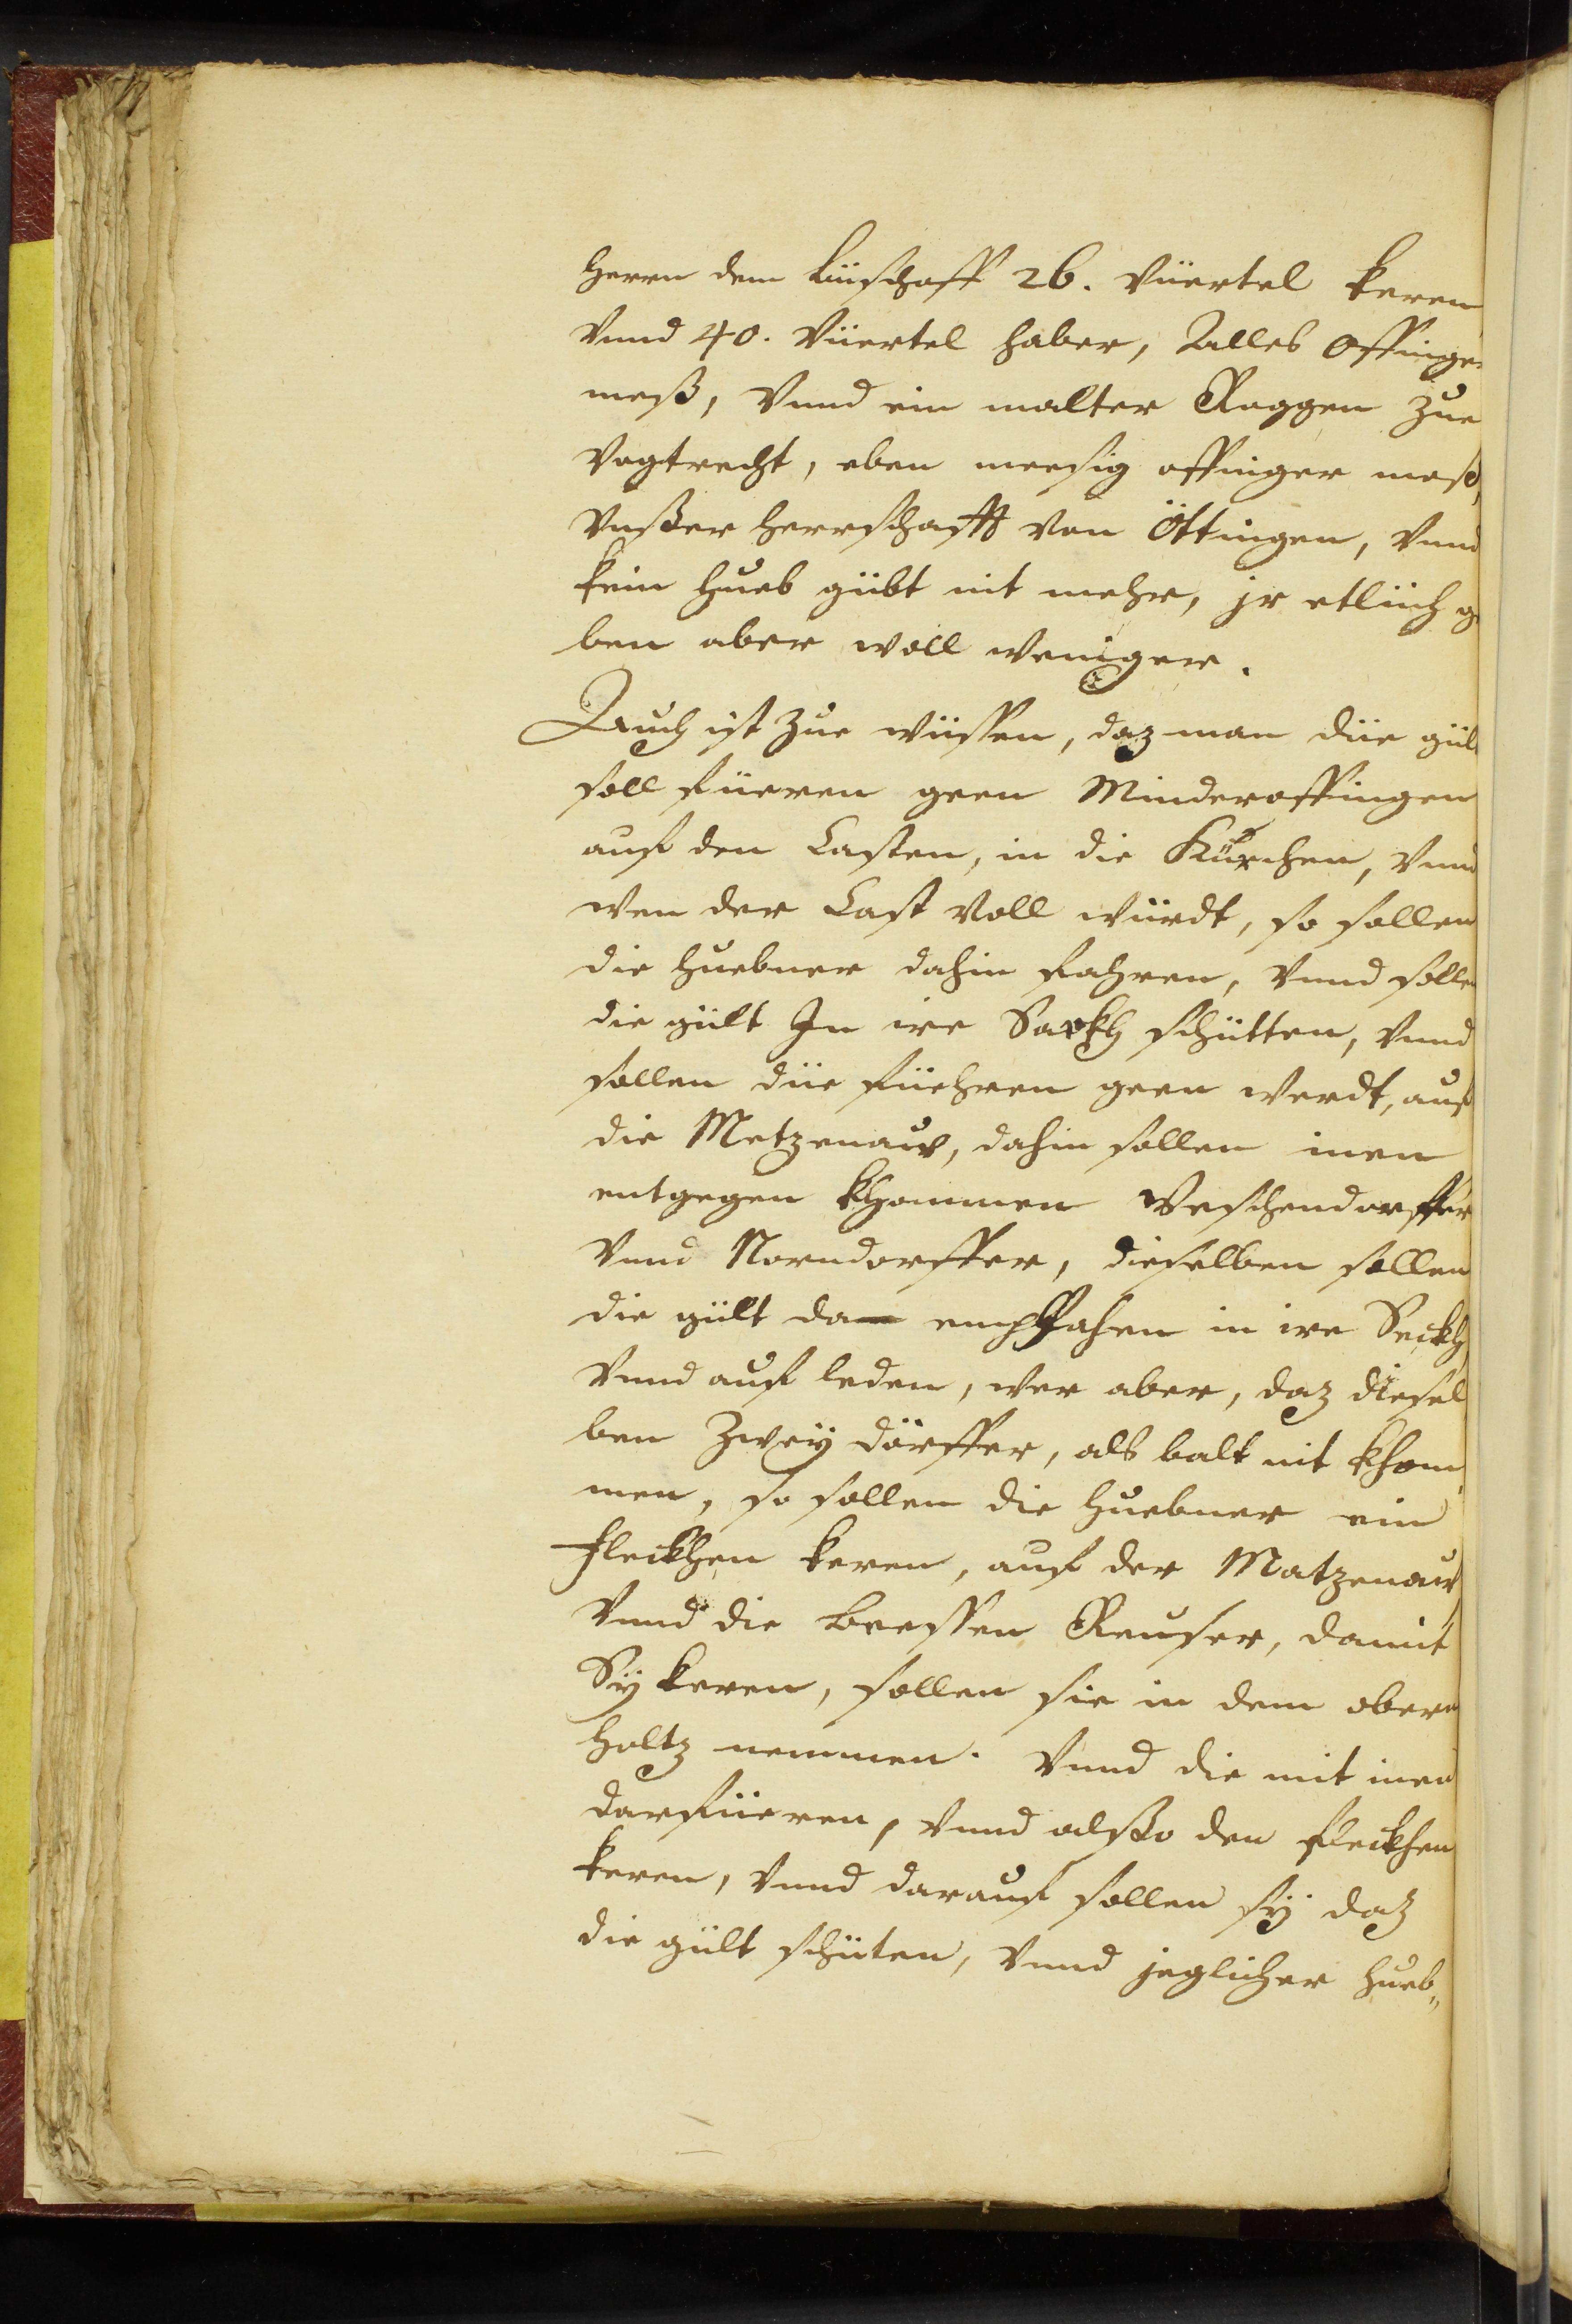 Herrn dem büschoff 26. Vüertel keren
Vnnd 40. Vüertel haber, Alles Offinger
meß, Vnnd ein malter Roggen zue
Vogtrecht, eben meesig offinger meß,
Vnßer Herrschafft von Öttingen, Vnnd
kein Hueb gübt nit mehr, jr etlüch g
ben aber woll weniger.
Auch ist zue wüssen, daz man düe gül
soll füeren geen Minderoffingen
auf den Casten, in die Kürchen, Vnnd
wen der Cast Voll würdt, so sollen
die huebner dahin fahren, Vnnd sollen
die gült In ire Sackh schütten, Vnnd
sollen düe füehren geen Werdt, auf
die Metzenauw, dahin sollen inen
entgegen khommen Weschendorffer
Vnnd Norndorffer, dieselben sollen
die gült da empfahen in ire Seckh
Vnnd auf leden, wer aber, daz diesel
ben Zweÿ dörffer, als balt nit khom
men, so sollen die Huebner ein
fleckhen keren, auf der Matzenauw
Vnnd die Beessen Reuser, damit
Sÿ keren, sollen sie in dem obern
holtz nemmen. Vnnd die mit inen
darfüeren, Vnnd alßo den fleckhen
keren, Vnnd darauf sollen sÿ daz
die gült schüten, Vnnd jeglicher hueb„